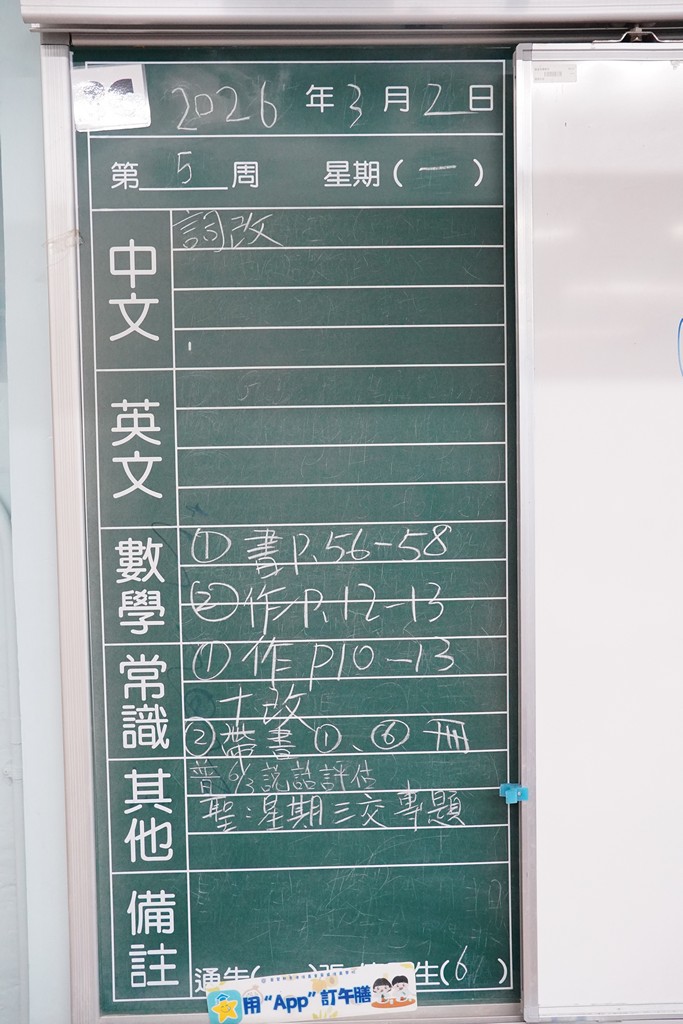 2026年3月2日
第5周 星期(一)
中文
詞改
英文
數學
①書P.56-58
②作P.12-13
常識
①作P10-13
+改
②帶書①、⑥冊
其他
普 6/3說話評估
聖:星期三交專題
備註
通告( )張 生(6)
用"App"訂午膳